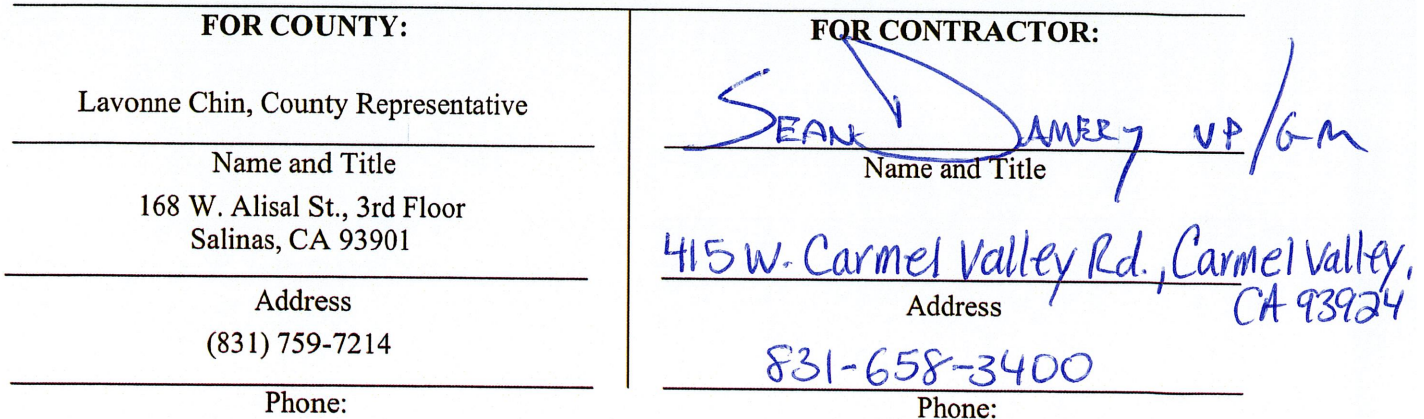 FOR COUNTY:
Lavonne Chin, County Representative
Name and Title
168 W. Alisal St., 3rd Floor
Salinas, CA 93901
Address
(831) 759-7214
Phone:
FOR CONTRACTOR:
SEAN DAMERY VP/GM
Name and Title
415 W. Carmel Valley Rd., Carmel Valley,
CA 93924
Address
831-658-3400
Phone: